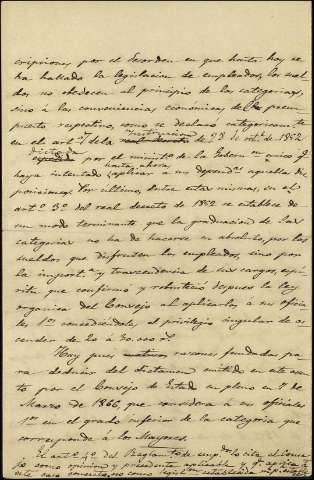 cripciones, por el desorden en que hasta hoy se
ha hallado la legislacion de empleados, los suel-
dos no obedecen al principio de las categorias,
sino á las conveniencias económicas del presu
puesto respectivo, como se declaró categoricamte
en el artº 7 de la Instruccion de 28 de oct.e de 1852
dictada por el minist.º de la Gobern.on unico q.e
haya intentado hasta ahora aplicar á sus depend.s aquellas dis
posiciones. Por ultimo, entre estas mismas, en el
art.º 3º del real decreto de 1852 se establece de
un modo terminante que la graduacion de las
categorias no ha de hacerse en absoluto, por los
sueldos que disfruten los empleados, sino por
la import.a y trascendencia de sus cargos, espí-
ritu que confirmó y robusteció despues la ley
organica del Consejo al aplicarlo á sus oficia-
les 1os concediéndoles el privilegio singular de as-
cender de 20 á 30.000 rs
Hay pues razones fundadas pa-
ra deducir del dictamen emitido en este asun-
to por el Consejo de Estado en pleno en 7 de
Marzo de 1866, que considera á sus oficiales
1os en el grado inferior de la categoria que
corresponde á los Mayores.
El art.º 4º del Reglam.to de emp.dos lo cita el Conse
jo como opinion y precedente aplicable y q.e aplica á
este caso concreto, no como legisl.on establecida